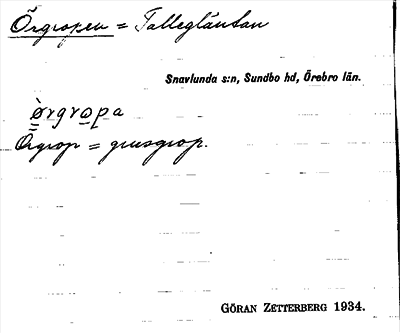 Örgropen = Tallegläntan
Snavlunda s:n, Sundbo hd, Örebro län.
ø̀rgro̲pa
Örgrop = grusgrop.
GÖRAN ZETTERBERG 1934.